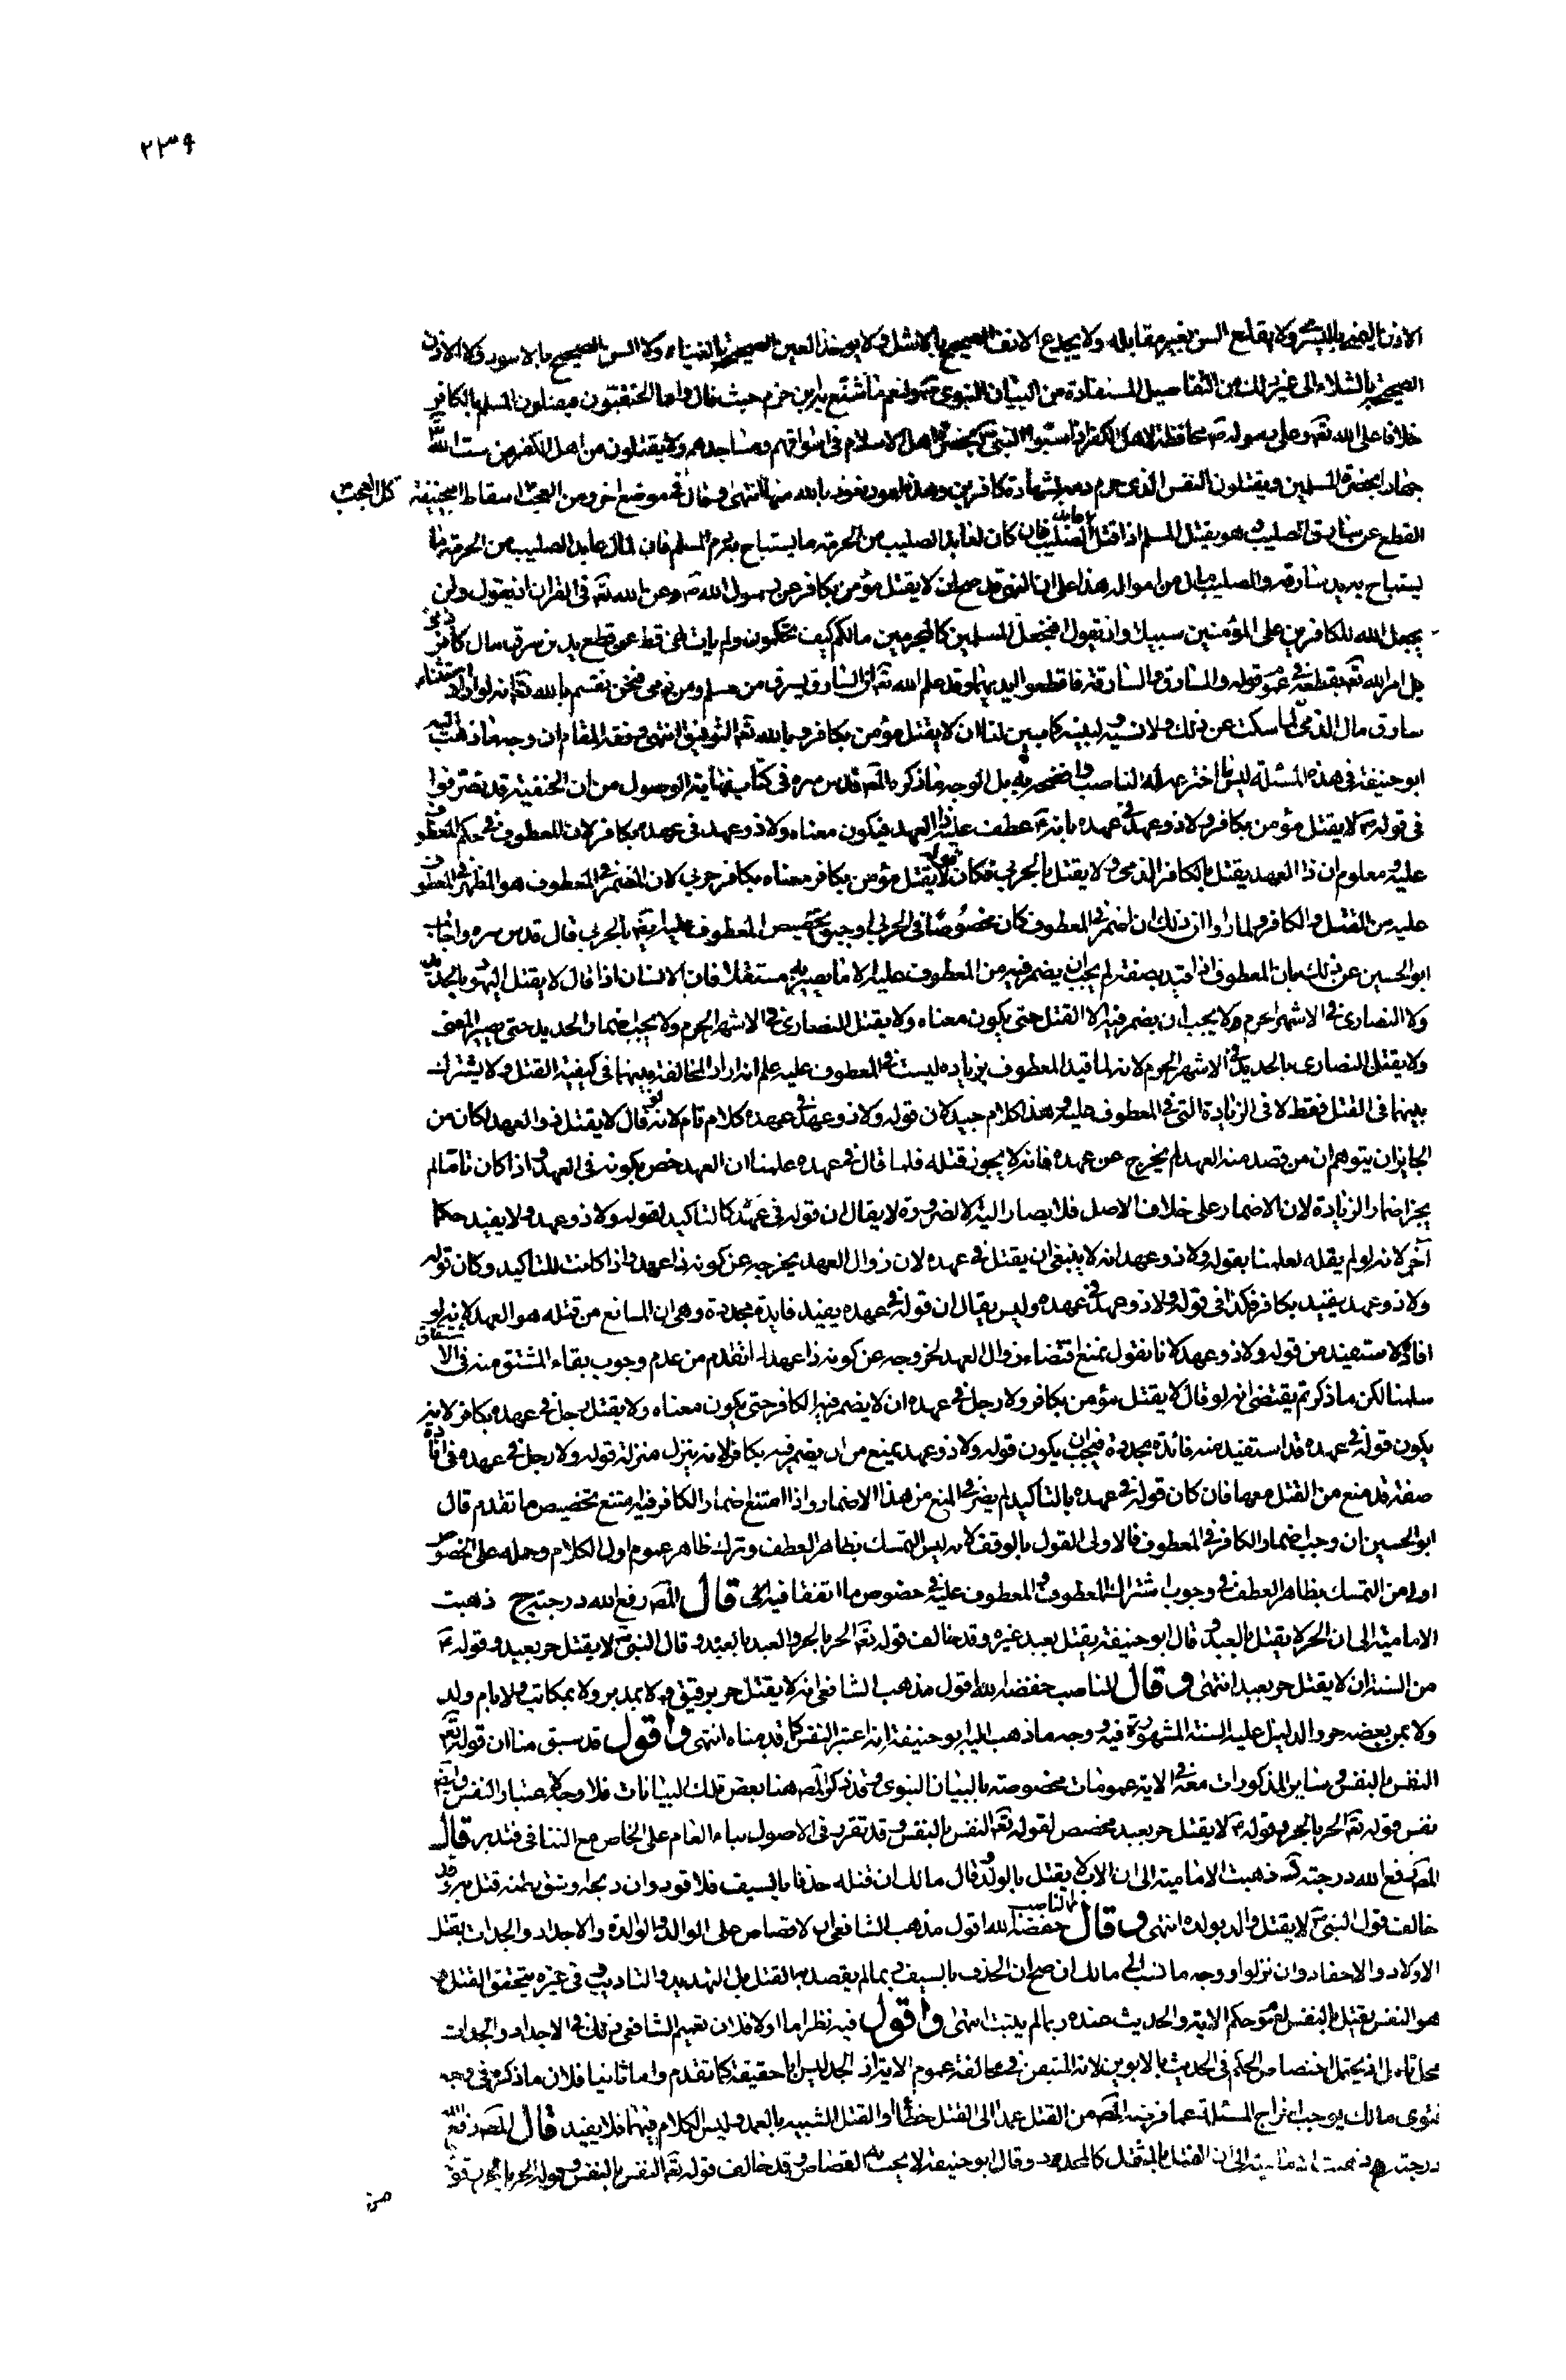 ٢٣٩
الاذن اليمنى باليسرى ولا يقلع السن بغير مقابله ولا يجدع الانف الصحيح بالاشل ولا يوخذ العين الصحيحة بالعمياء ولا السن الصحيح بالاسود ولا الاذن
الصحيحة بالشلاء الى غير ذلك من التفاصيل المستفادة من البيان النبوى ص ولنعم ما شنّع به ابن حزم حيث قال واما الحنفيّون فيقتلون المسلم بالكافر
خلافا على الله تع وعلى رسوله ص محافظة لاهل الكفر اذا سبّوا النبى ص بحضرة اهل الاسلام فى اسواقهم ومساجدهم ولا يقتلون من اهل الكفر من سبّ الله
جهارا بحضرة المسلمين ويقتلون النفس الذى حرم دمه بشهادة كافرين وهذه امور نعوذ بالله منها انتهى وقال فى موضع اخر ومن العجب اسقاط ابيحنيفة كل العجب
القطع عن سارق الصليب وهو يقتل المسلم اذا قتل عابد الصليب فان كان لعابد الصليب من الحرمة ما يستباح به دم المسلم فان لمال عابد الصليب من الحرمة ما
يستباح به يد سارقه والصليب مال من امواله هذا على ان النص قد صح ان لا يقتل مؤمن بكافر عن رسول الله ص وعن الله تع فى القران اذ يقول ولن
يجعل الله للكافرين على المؤمنين سبيلا واذ يقول افنجعل المسلمين كالمجرمين مالكم كيف تحكمون ولم يات نص قط عمن قطع يد من سرق مال كافر ذمى
بل امر الله تع بقطعه فى عموم قوله والسارق والسارقة فاقطعوا ايديهما وقد علم الله تع ان السارق يسرق من مسلم ومن ذمى فنحن نقسم بالله تع انه لو اراد استثناء
سارق مال الذمى لما سكت عن ذلك ولا نسيه ولبينه كما بين لنا ان لا يقتل مؤمن بكافر وبالله تع التوفيق انتهى وفقه المقام ان وجه ما ذهب اليه
ابو حنيفة فى هذه المسئلة ليس ما اخترعه له الناصب وافتضح به بل الوجه ما ذكره المص قدس سره فى كتاب نهاية الوصول من ان الحنفية قد تصرفوا
فى قوله ص لا يقتل مؤمن بكافر ولا ذو عهد فى عهده بانه ص عطف عليه ذا العهد فيكون معناه ولا ذو عهد فى عهده بكافر لان المعطوف فى حكم المعطوف
عليه ومعلوم ان ذا العهد يقتل بالكافر الذمى ولا يقتل بالحربى فكان قوله لا يقتل مؤمن بكافر معناه بكافر حربى لان المضمر فى المعطوف هو المظهر فى المعطوف
عليه من القتل والكافر ولما راوا ان ذلك ان اضمر فى المعطوف كان مخصوصا فى الحربى اوجبوا تخصيص المعطوف عليه ايضا بالحربى قال قدس سره واجاب
ابو الحسين عن ذلك بان المعطوف اذا قيد بصفة لم يجب ان يضمر فيه من المعطوف عليه الا ما يصير به مستقلا فان الانسان اذا قال لا يقتل اليهود بالحديد
ولا النصارى فى الاشهر الحرم ولا يجب ان يضمر فيه الا القتل حتى يكون معناه ولا يقتل النصارى فى الاشهر الحرم ولا يجب اضمار الحديد حتى يصير المعنى
ولا يقتل النصارى بالحديد فى الاشهر الحرم لانه لما قيد المعطوف بزيادة ليست فى المعطوف عليه علم انه اراد المخالفة بينهما فى كيفية القتل ولا يشترك
بينهما فى القتل فقط لا فى الزيادة التى فى المعطوف عليه وهذا كلام جيد لان قوله ولا ذو عهد فى عهده كلام تام لانه لو قال لا يقتل ذو العهد لكان من
الجايز ان يتوهم ان من قصد منه العهد لم يخرج عن عهده فانه لا يجوز قتله فلما قال فى عهده علمنا ان العهد خص بكونه فى العهد واذا كان تاما لم
يجز اضمار الزيادة لان الاضمار على خلاف الاصل فلا يصار اليه الا لضرورة لا يقال ان قوله فى عهده كالتاكيد لقوله ولا ذو عهد ولا يفيد حكما
آخر لانه لو لم يقله لعلمنا بقوله ولا ذو عهد انه لا ينبغى ان يقتل فى عهده لان زوال العهد يخرجه عن كونه ذا عهد واذا كانت للتاكيد وكان قوله
ولا ذو عهد يفيد بكافر فكذا فى قوله ولا ذو عهد فى عهده وليس يقال ان قوله فى عهده يفيد فايدة مجددة وهى ان المانع من قتله هو العهد لانه لو
افاد ذلك لاستفيد من قوله ولا ذو عهد لانا نقول نمنع اقتضاء زوال العهد لخروجه عن كونه ذا عهد لما تقدم من عدم وجوب بقاء المشتق منه فى الاشتقاق
سلمنا لكن ما ذكرتم يقتضى انه لو قال لا يقتل مؤمن بكافر ولا رجل فى عهده ان لا يضمر فيه الكافر حتى يكون معناه ولا يقتل رجل فى عهده بكافر لانه
يكون قوله فى عهده قد استفيد منه فائدة مجددة فيجب ان يكون قوله ولا ذو عهد يمنع من ان يضمر فيه بكافر لانه ينزل منزلة قوله ولا رجل فى عهده فى افادة
صفة قد منع من القتل معها فان كان قوله فى عهده بالتاكيد لم يضر فى المنع من هذا الاضمار واذا امتنع اضمار الكافر فيه امتنع تخصيص ما تقدم قال
ابو الحسين ان وجب اضمار الكافر فى المعطوف فالاولى القول بالوقف لانه ليس التمسك بظاهر العطف وترك ظاهر عموم اول الكلام وحمله على الخصوص
اولى من التمسك بظاهر العطف فى وجوب اشتراك المعطوف والمعطوف عليه فى خصوص ما اتفقا فيه الخ قال المص رفع الله درجته ج ذهبت
الامامية الى ان الحر لا يقتل بالعبد وقال ابو حنيفة يقتل بعبد غيره وقد خالف قوله تع الحر بالحر والعبد بالعبد وقال النبى ص لا يقتل حر بعبد وقوله ع
من السنة ان لا يقتل حر بعبد انتهى وقال الناصب خفضه الله اقول مذهب الشافعى انه لا يقتل حر برقيق ولا بمدبر ولا بمكاتب ولا بام ولد
ولا بمن بعضه حر والدليل عليه السنة المشهورة فيه ووجه ما ذهب اليه ابو حنيفة انه اعتبر النفس كما قدمناه انتهى واقول قد سبق منا ان قوله تع
النفس بالنفس وساير المذكورات معه فى الاية عمومات مخصوصة بالبيان النبوى وقد ذكر المص هنا بعض تلك البيانات فلا وجه لاعتبار النفس وايضا
نفس قوله تع الحر بالحر وقوله ص لا يقتل حر بعبد مخصص لقوله تع النفس بالنفس وقد تقرر فى الاصول بناء العام على الخاص مع التنافى فتدبر قال
المص رفع الله درجته ذهبت الامامية الى ان الاب لا يقتل بالولد وقال مالك ان قتله حذفا بالسيف فلا قود وان ذبحه او شق بطنه قتل به وقد
خالف قول النبى ص لا يقتل والد بولده انتهى وقال الناصب خفضه الله اقول مذهب الشافعى ان لا قصاص على الوالد والوالدة والاجداد والجدات بقتل
الاولاد والاحفاد وان نزلوا ووجه ما نسب الى مالك ان صح ان الحذف بالسيف ربما لم يقصد به القتل بل التهديد والتاديب وفى غيره يتحقق القتل و
هو النفس يقتل بالنفس لعموم حكم الاية والحديث عنده ربما لم يثبت انتهى واقول فيه نظر اما اولا فلان تعميم الشافعى ذلك فى الاجداد والجدات
محل تامل اذ يحتمل اختصاص الحكم فى الحديث بالابوين لانه المتيقن فى مخالفة عموم الاية اذ الجد ليس ابا حقيقة كما تقدم واما ثانيا فلان ما ذكره فى وجه
فتوى مالك يوجب اخراج المسئلة عما فرضه المص من القتل عمدا الى القتل خطأ او القتل الشبيه بالعمد وليس الكلام فيهما فلا يفيد قال المص رفع الله
درجته ذهبت الامامية الى ان القتل بالمثقل كالمحدد وقال ابو حنيفة لا يجب به القصاص وقد خالف قوله تع النفس بالنفس وقوله الحر بالحر